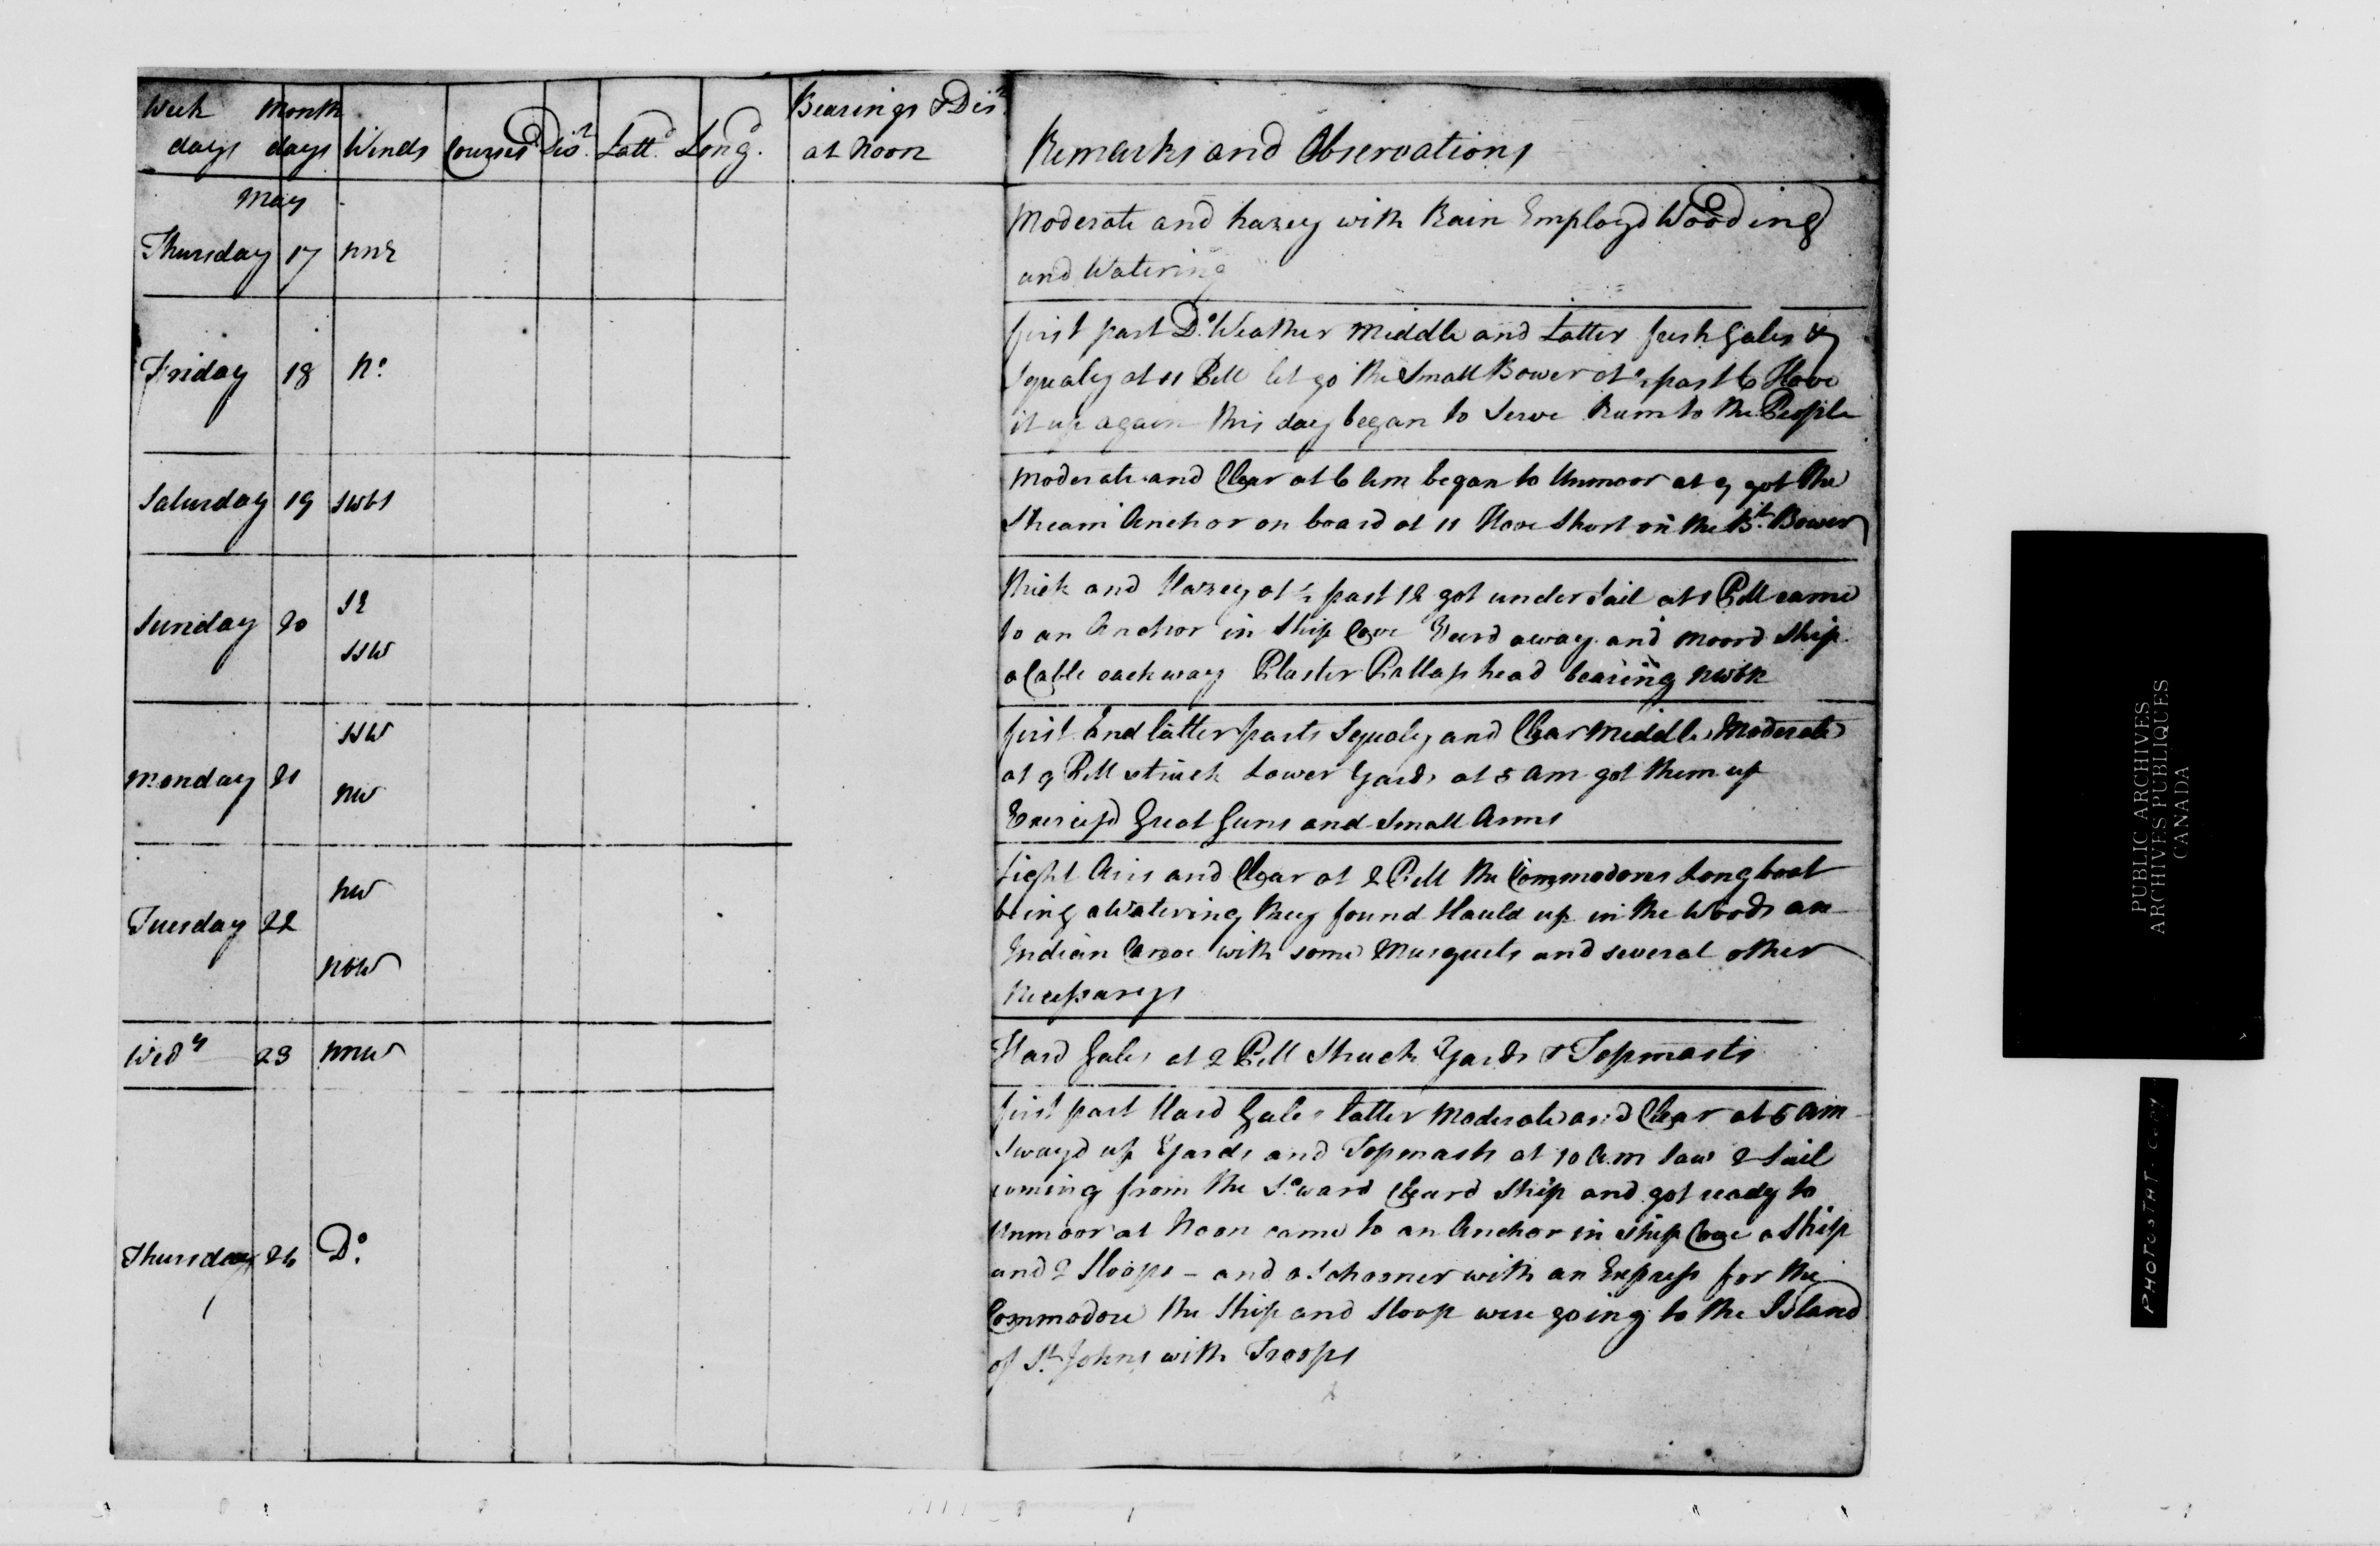 Week Month Bearings & Dis.ce
days days Winds Courses Dis.ce Latt.d Long.d at Noon Remarks and Observations
May
Thursday 17 NNE Moderate and hazey with Rain Employd Wooding
and Watering
Friday 18 No. first part Do. Weather Middle and Latter fresh Gales &
Squaly at 11 PM let go the Small Bower at ½ past 6 Hove
it up again this day began to Serve Rum to the People
Saturday 19 SWbS Moderate and Clear at 6 Am began to Unmoor at 9 got the
Stream Anchor on board at 11 Hove Short on the Bt. Bower
Sunday 20 SE Thick and Hazey at ½ past 12 got under Sail at 1 PM came
to an Anchor in Ship Cove Veerd away and moord Ship
SSW a Cable each way Plaster head bearing NWbN
Monday 21 SSW first And latter parts Squaly and Clear Middle Moderate
NW at 9 PM struck Lower Yards at 5 am got them up
Exercis'd Great Guns and Small Arms
Tuesday 22 NW Light Airs and Clear at 2 PM the Commodores Longboat
being a Watering they found Hauld up in the Woods an
NbW Indian Canoe with some Musquets and several other
Necessarys
Wedy 23 NNW Hard Gales at 2 PM Struck Yards & Topmasts
first part Hard Gales latter Moderate and Clear at 5 am
Sway'd up Yards and Topmasts at 10 a.m saw 2 Sail
coming from the So.ward Cleard Ship and got ready to
Unmoor at Noon came to an Anchor in Ship Cove a Ship
Thursday 24 Do. and 2 Sloops - and a Schooner with an Express for the
Commodore the Ship and Sloop were going to the Island
of St. Johns with Troops
PUBLIC ARCHIVES
ARCHIVES PUBLIQUES
CANADA
PHOTOSTAT COPY